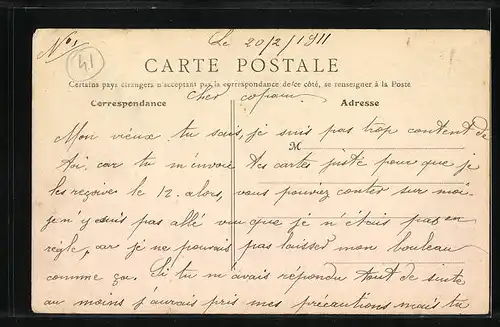 N° 1
Le 20/2/1911
41
CARTE POSTALE
Certains pays étrangers n'acceptant pas la correspondance de ce côté, se renseigner à la Poste
Correspondance
Adresse
Cher copain.
M
Mon vieux tu sais, je suis pas trop content de
toi car tu m'envoie tes cartes juste pour que je
les reçoive le 12. alors, vous pouviez conter sur moi
je n'y suis pas allé vu que je n'étais pas en
règle, car je ne pouvais pas laisser mon bouleau
comme ça. Si tu m'avais répondu tout de suite
au moins j'aurais pris mes précautions mais tu